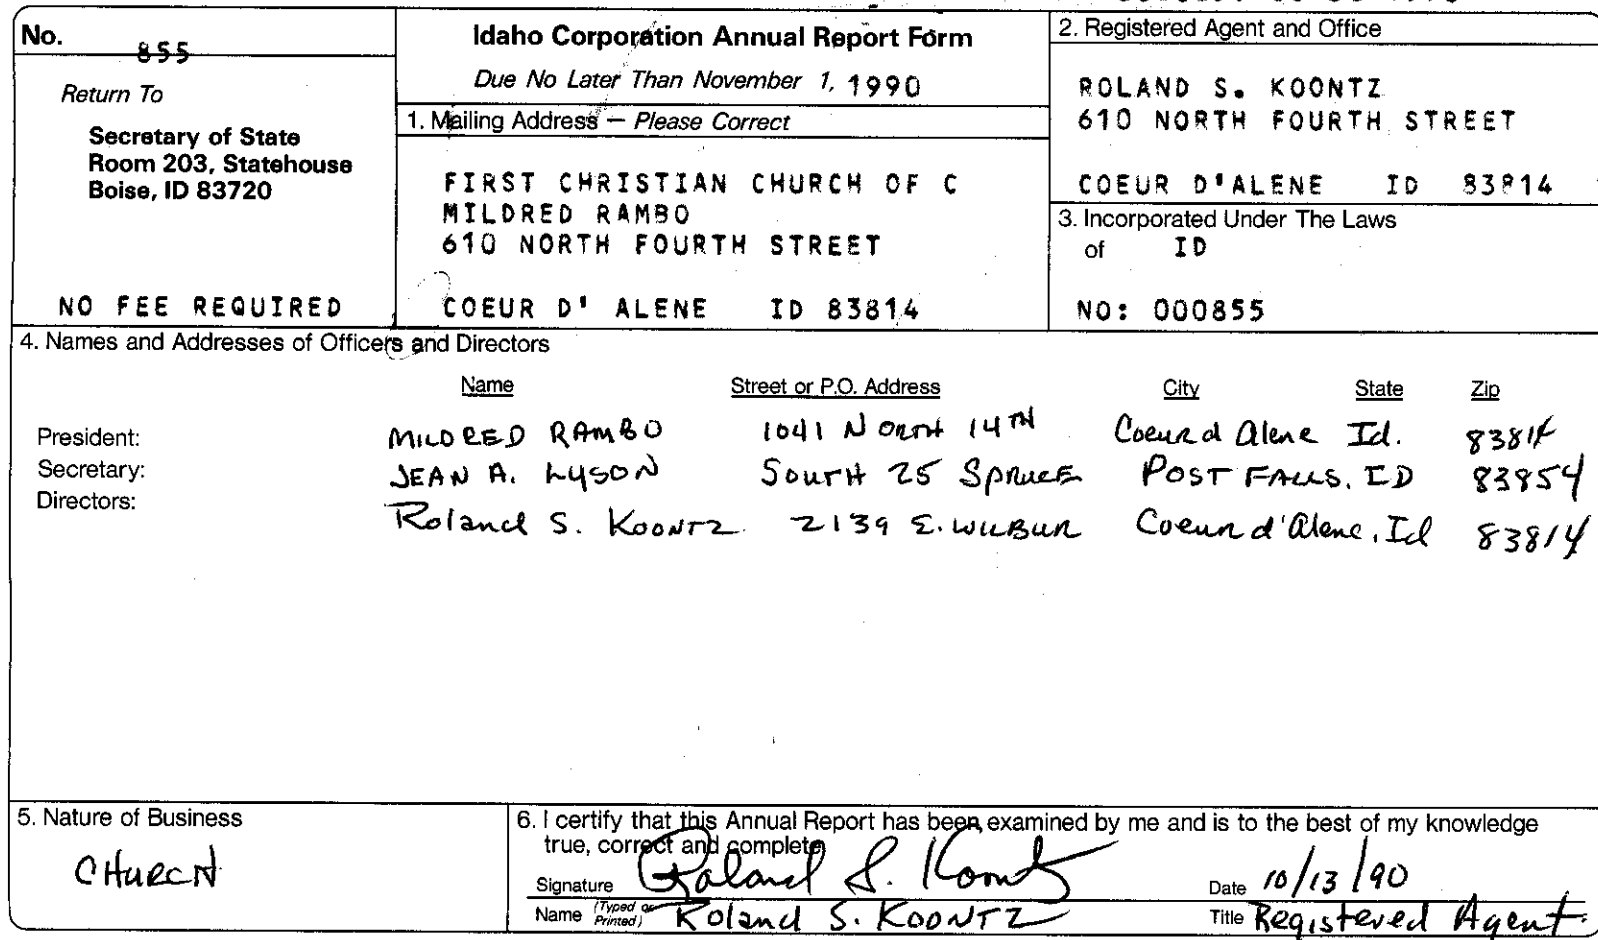 No. 855
Return To
Secretary of State
Room 203, Statehouse
Boise, ID 83720
NO FEE REQUIRED
Idaho Corporation Annual Report Form
Due No Later Than November 1, 1990
1. Mailing Address — Please Correct
FIRST CHRISTIAN CHURCH OF C
MILDRED RAMBO
610 NORTH FOURTH STREET
COEUR D' ALENE ID 83814
2. Registered Agent and Office
ROLAND S. KOONTZ
610 NORTH FOURTH STREET
COEUR D'ALENE ID 83814
3. Incorporated Under The Laws
of ID
NO: 000855
4. Names and Addresses of Officers and Directors
Name Street or P.O. Address City State Zip
President: MILDRED RAMBO 1041 NORTH 14TH Coeur d Alene Id. 83814
Secretary: JEAN A. LYSON SOUTH 25 SPRUCE POST FALLS, ID 83854
Directors: Roland S. KOONTZ 2139 E. WILBUR Coeur d'Alene, Id 83814
5. Nature of Business
CHURCH
6. I certify that this Annual Report has been examined by me and is to the best of my knowledge
true, correct and complete
Signature Roland S. Koontz Date 10/13/90
Name (Typed or Printed) Roland S. KOONTZ Title Registered Agent